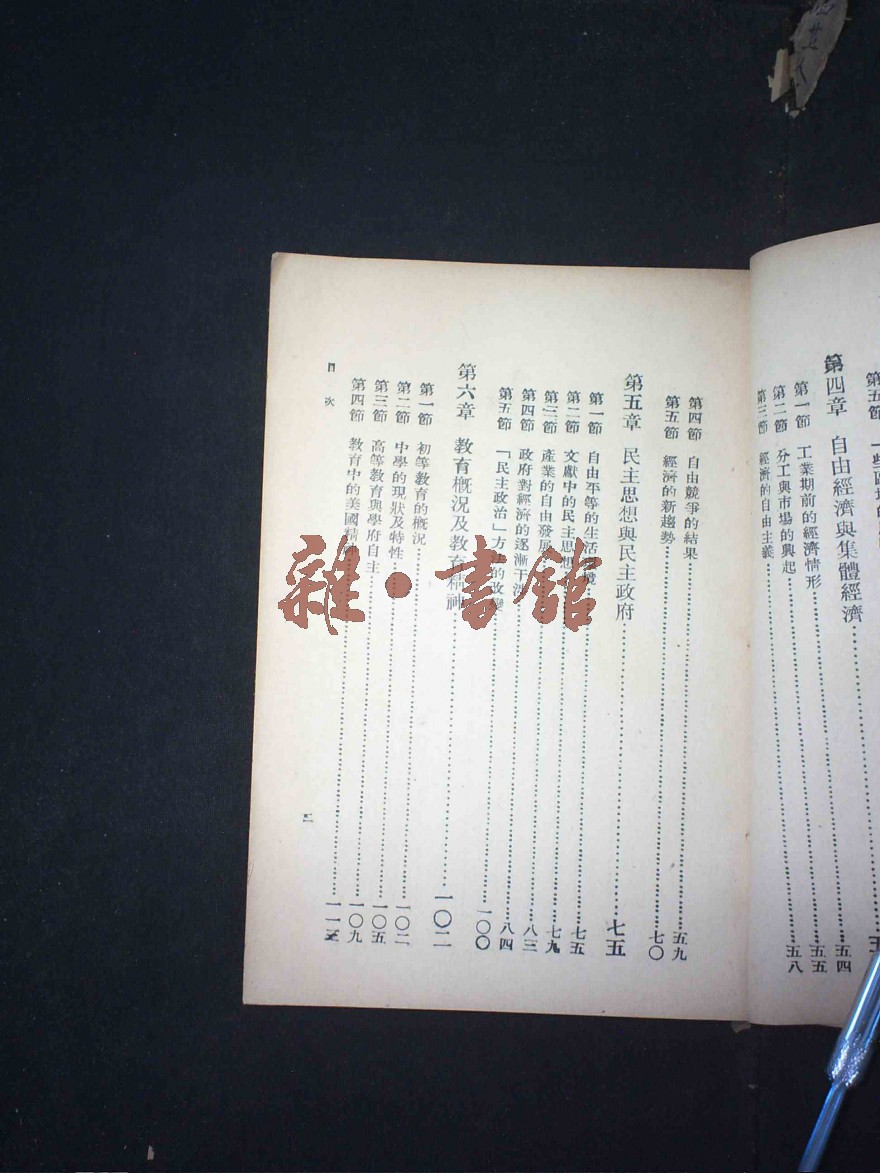 第四章 自由經濟與集體經濟
第一節 工業期前的經濟情形 五四
第二節 分工與市場的興起 五五
第三節 經濟的自由主義 五八
第四節 自由競爭的結果 五九
第五節 經濟的新趨勢 七〇
第五章 民主思想與民主政府 七五
第一節 自由平等的生活 七五
第二節 文獻中的民主思想 七九
第三節 產業的自由發展 八三
第四節 政府對經濟的逐漸干涉 八四
第五節 「民主政治」方法的改變 一〇〇
第六章 教育概況及教育精神 一〇二
第一節 初等教育的概況 一〇二
第二節 中學的現狀及特性 一〇五
第三節 高等教育與學府自主 一〇九
第四節 教育中的美國精神 一一三
目次
二
雜·書館